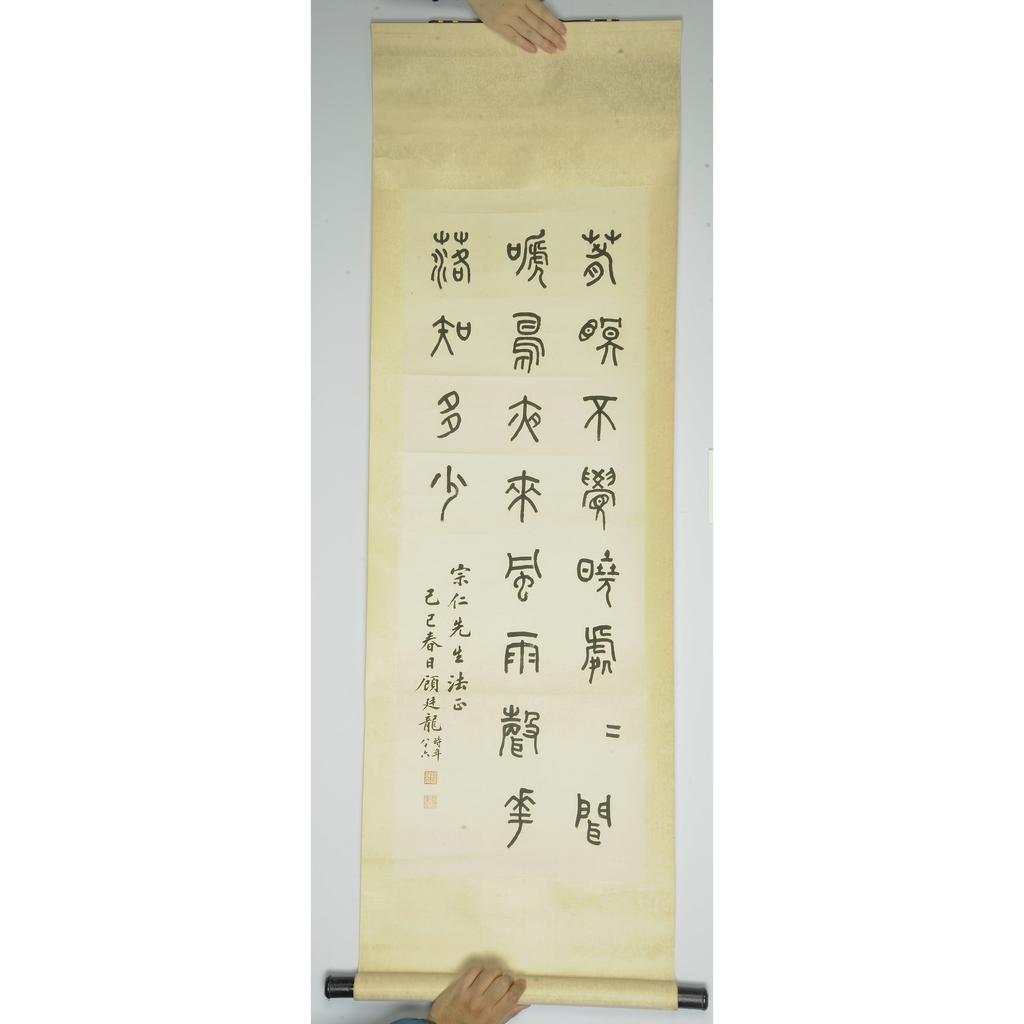 春眠不覺曉處〻聞
嗁鳥夜來風雨聲花
落知多少
宗仁先生法正
己巳春日顧廷龍時年八六